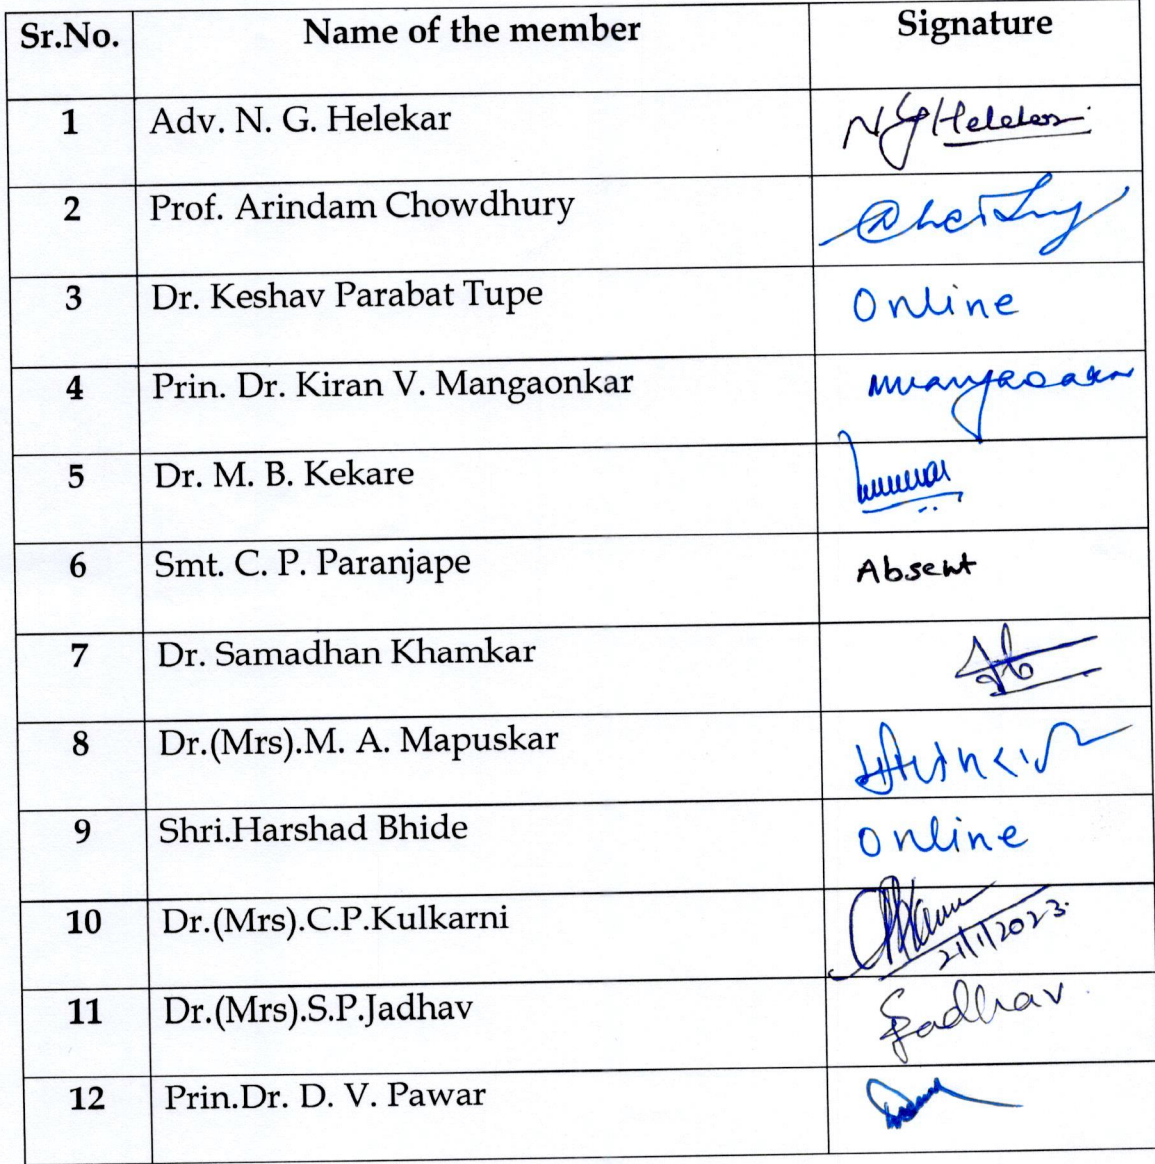 Sr.No. Name of the member Signature
1 Adv. N. G. Helekar NG Helekar
2 Prof. Arindam Chowdhury
3 Dr. Keshav Parabat Tupe Online
4 Prin. Dr. Kiran V. Mangaonkar
5 Dr. M. B. Kekare
6 Smt. C. P. Paranjape Absent
7 Dr. Samadhan Khamkar
8 Dr.(Mrs).M. A. Mapuskar
9 Shri.Harshad Bhide online
10 Dr.(Mrs).C.P.Kulkarni 21/1/2023
11 Dr.(Mrs).S.P.Jadhav Jadhav
12 Prin.Dr. D. V. Pawar